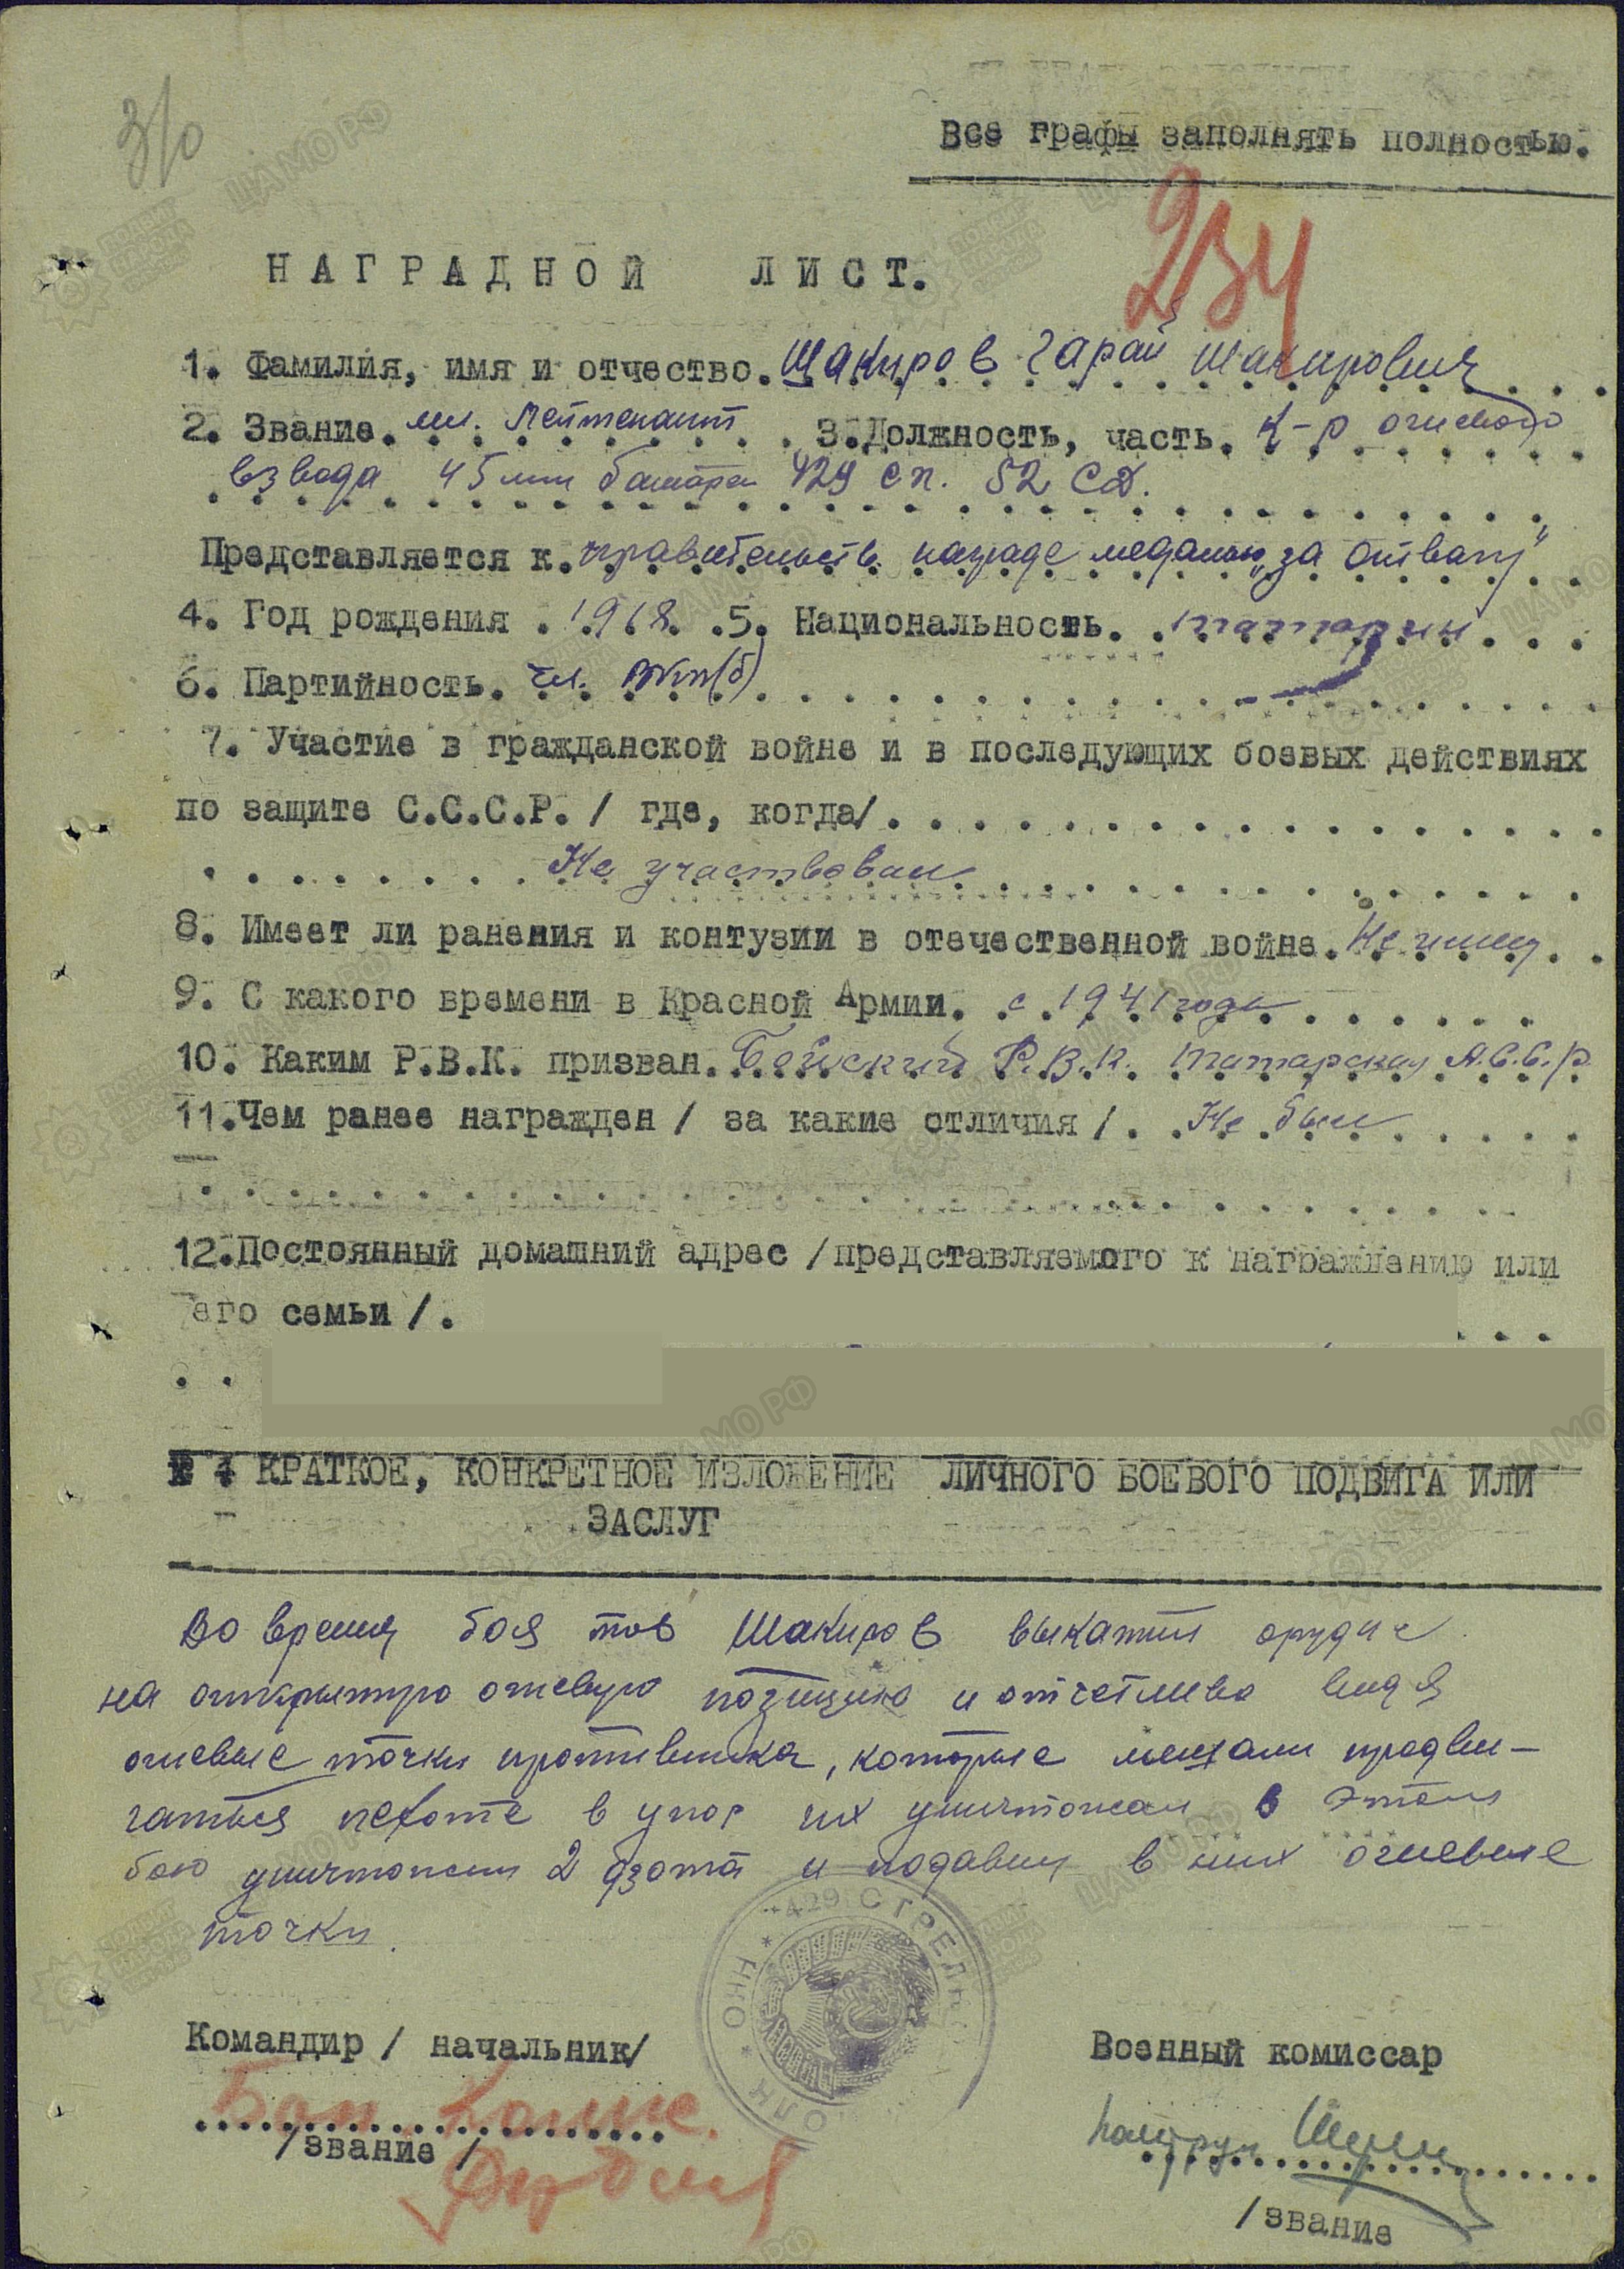 З/0
Все графы заполнять полностью.
234
НАГРАДНОЙ ЛИСТ.
1. Фамилия, имя и отчество. Шакиров Гарай Шакирович
2. Звание. мл. лейтенант 3. Должность, часть. К-р огневого
взвода 45 мм батареи 429 сп. 52 СД.
Представляется к. правительств. награде медалью „За отвагу"
4. Год рождения . 1918. 5. Национальность. татарин
6. Партийность. чл. ВКП(б)
7. Участие в гражданской войне и в последующих боевых действиях
по защите С.С.С.Р. / где, когда/
Не участвовал
8. Имеет ли ранения и контузии в отечественной войне. Не имеет
9. С какого времени в Красной Армии. с 1941 года
10. Каким Р.В.К. призван. Р.В.К. Татарская А.С.С.Р.
11. Чем ранее награжден / за какие отличия /. Не был
12. Постоянный домашний адрес /представляемого к награждению или
его семьи /.
КРАТКОЕ, КОНКРЕТНОЕ ИЗЛОЖЕНИЕ ЛИЧНОГО БОЕВОГО ПОДВИГА ИЛИ
ЗАСЛУГ
Во время боя тов Шакиров выкатил орудие
на открытую огневую позицию и отчетливо видя
огневые точки противника, которые мешали продви-
гаться пехоте в упор их уничтожал в этом
бою уничтожил 2 дзота и подавил в них огневые
точки.
* 429 СТРЕЛК ПОЛК * НКО *
Командир / начальник/
Военный комиссар
Бат. Комис.
/звание /
/звание
ЦАМО РФ
ПОДВИГ НАРОДА